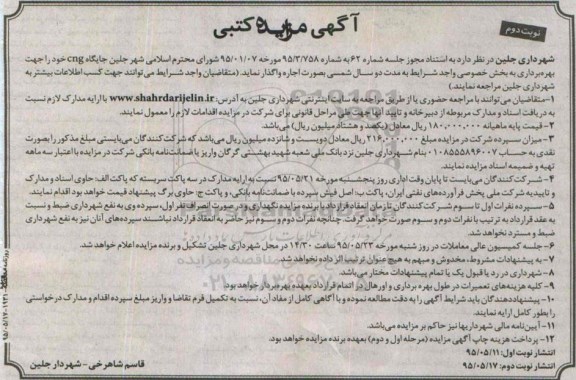 آگهی مزایده کتبی
نوبت دوم
شهرداری جلین در نظر دارد به استناد مجوز جلسه شماره ۶۲ به شماره ۹۵/۳/۷۵۸ مورخه ۹۵/۰۱/۰۷ شورای محترم اسلامی شهر جلین جایگاه cng خود را جهت
بهره‌برداری به بخش خصوصی واجد شرایط به مدت دو سال شمسی بصورت اجاره واگذار نماید. (متقاضیان واجد شرایط می‌توانند جهت کسب اطلاعات بیشتر به
شهرداری جلین مراجعه نمایند.)
۱-متقاضیان می‌توانند با مراجعه حضوری یا از طریق مراجعه به سایت اینترنتی شهرداری جلین به آدرس: www.shahrdarijelin.ir با ارایه مدارک لازم نسبت
به دریافت اسناد و مدارک مربوطه از دبیرخانه و تایید آنها جهت طی مراحل قانونی برای شرکت در مزایده اقدامات لازم را معمول نمایند.
۲- قیمت پایه ماهیانه ۱۸۰,۰۰۰,۰۰۰ ریال معادل (یکصد و هشتاد میلیون ریال) می‌باشد.
۳- میزان سپرده شرکت در مزایده مبلغ ۲۱۶,۰۰۰,۰۰۰ ریال معادل دویست و شانزده میلیون ریال می‌باشد که شرکت‌کنندگان می‌بایستی مبلغ مذکور را بصورت
نقدی به حساب ۰۱۰۸۵۵۵۸۹۶۰۰۷ بنام شهرداری جلین نزد بانک ملی شعبه شهید بهشتی گرگان واریز یا ضمانت‌نامه بانکی شرکت در مزایده با اعتبار سه ماهه
تهیه و ضمیمه اسناد مزایده نمایند.
۴- شرکت‌کنندگان می‌بایست تا پایان وقت اداری روز پنجشنبه مورخه ۹۵/۰۵/۲۱ نسبت به ارایه مدارک در سه پاکت سربسته که پاکت الف: حاوی اسناد و مدارک
و تاییدیه شرکت ملی پخش فرآورده‌های نفتی ایران، پاکت ب: اصل فیش سپرده یا ضمانت‌نامه بانکی، و پاکت ج: حاوی برگ پیشنهاد قیمت خواهد بود اقدام نمایند.
۵- سپرده نفرات اول تا سوم شرکت‌کنندگان تا زمان انعقاد قرارداد با برنده مزایده نگهداری و در صورت انصراف نفر اول، سپرده وی به نفع شهرداری ضبط و نسبت
به عقد قرارداد به ترتیب با نفرات دوم و سوم صورت خواهد گرفت. چنانچه نفرات دوم و سوم نیز حاضر به انعقاد قرارداد نباشند سپرده‌های آنان نیز به نفع شهرداری
ضبط و مسترد نخواهد شد.
۶- جلسه کمیسیون عالی معاملات در روز شنبه مورخه ۹۵/۰۵/۲۳ ساعت ۱۴/۳۰ در محل شهرداری جلین تشکیل و برنده مزایده اعلام خواهد شد.
۷- به پیشنهادات مشروط، مخدوش و مبهم به هیچ عنوان ترتیب اثر داده نخواهد شد.
۸- شهرداری در رد یا قبول یک یا تمام پیشنهادات مختار می‌باشد.
۹- کلیه هزینه‌های تعمیرات در طول بهره برداری و اورهال در اتمام قرارداد بعهده بهره بردار خواهد بود.
۱۰- پیشنهاددهندگان باید شرایط آگهی را به دقت مطالعه نموده و با آگاهی کامل از مفاد آن، نسبت به تکمیل فرم تقاضا و واریز مبلغ سپرده اقدام و مدارک درخواستی
را بطور کامل ارایه نمایند.
۱۱- آیین‌نامه مالی شهرداریها نیز حاکم بر مزایده می‌باشد.
۱۲- پرداخت هزینه چاپ آگهی مزایده (مرحله اول و دوم) بعهده برنده مزایده خواهد بود.
انتشار نوبت اول: ۹۵/۰۵/۱۱
انتشار نوبت دوم: ۹۵/۰۵/۱۷
قاسم شاهرخی - شهردار جلین